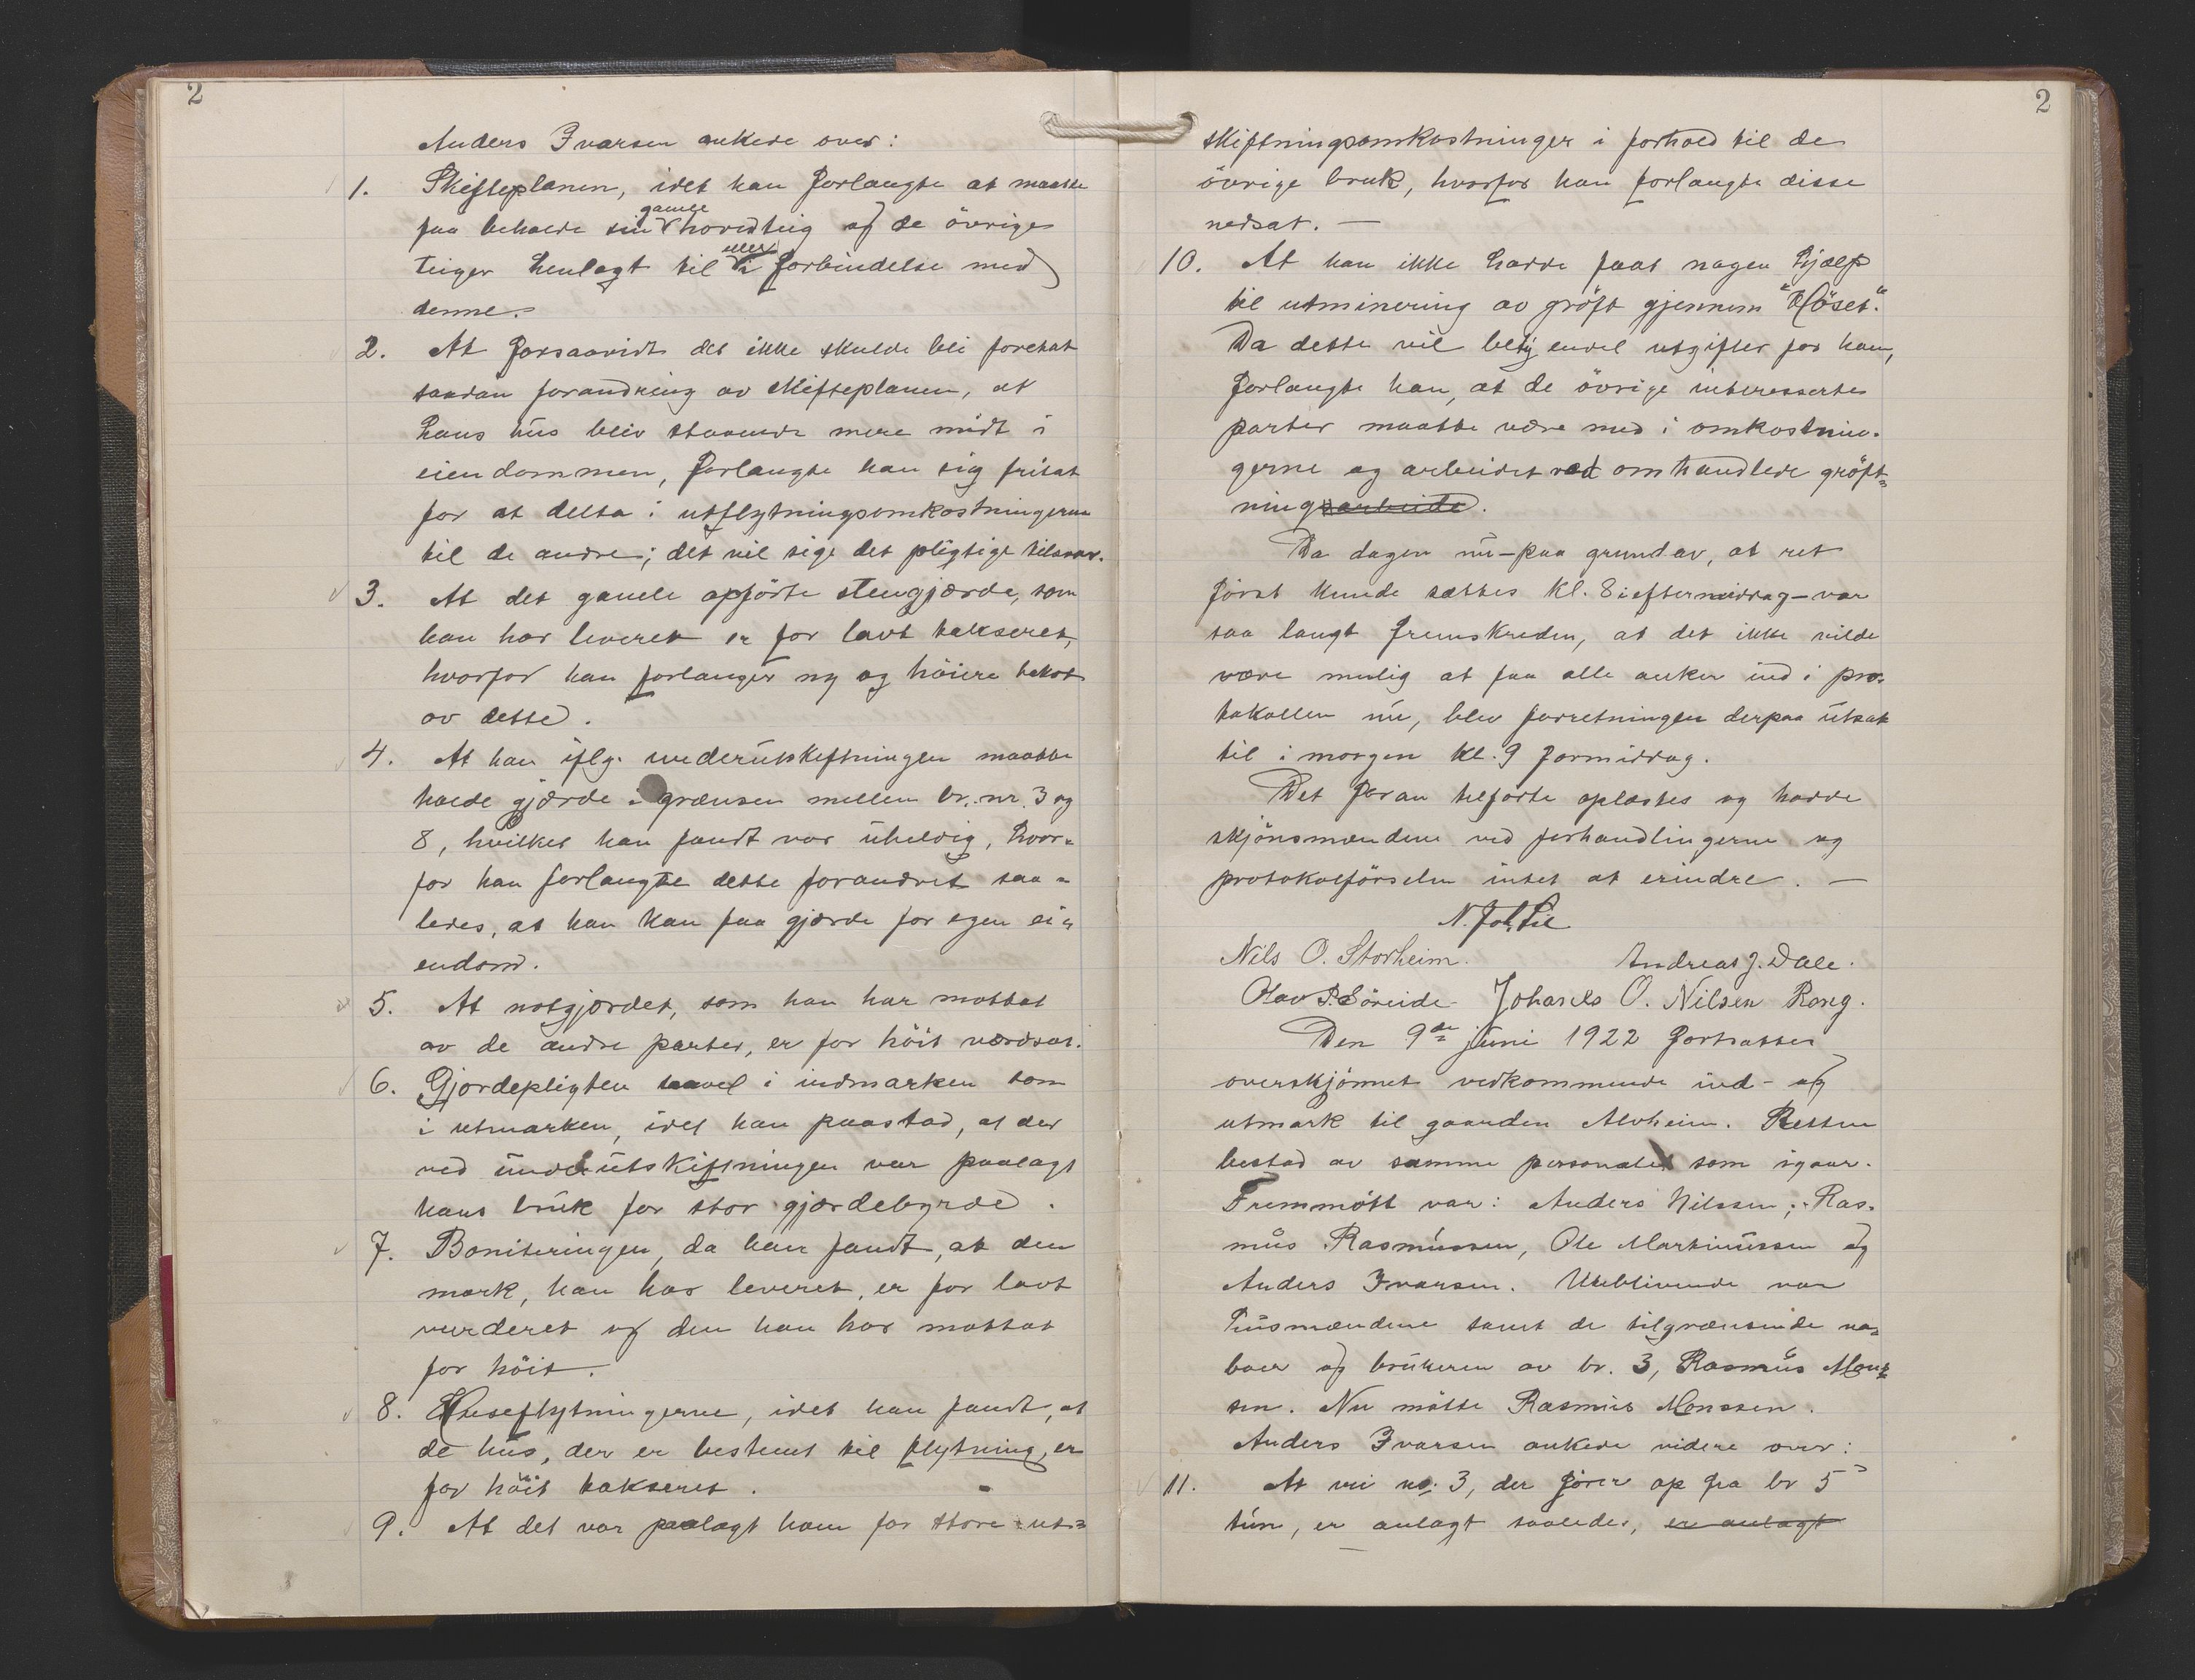 2
Anders Ivarsen ankede over:
1. Skifteplanen, idet han forlangte at maatte
faa beholde sin gamle hovedteig og de övrige
teiger henlagt til eller i forbindelse med
denne.
2. At forsaavidt det ikke skulde bli foretat
saadan forandring av skifteplanen, at
hans hus blev staaende mere midt i
eiendommen, forlangte han sig fritat
for at delta i utflytningsomkostningerne
til de andre; det vil sige det pligtige tilsvar.
3. At det gamle opförte stengjærde, som
han har leveret er for lavt takseret,
hvorfor han forlanger ny og höiere takst
av dette.
4. At han iflg. underutskiftningen maatte
holde gjærde i grænsen mellem br. nr. 3 og
8, hvilket han fandt var uheldig, hvor-
for han forlangte dette forandret saa-
ledes, at han kan faa gjærde for egen ei-
endom.
5. At notgjærdet, som han har mottat
av de andre parter, er for höit værdsat.
6. Gjærdepligten saavel i indmarken som
i utmarken, idet han paastod, at der
ved underutskiftningen var paalagt
hans bruk for stor gjærdebyrde.
7. Boniteringen, da han fandt, at den
mark, han har leveret, er for lavt
vurderet og den han har mottat
for höit.
8. Huseflytningerne, idet han fandt, at
de hus, der er bestemt til flytning, er
for höit takseret.
9. At det var paalagt ham for store ut-
2
skiftningsomkostninger i forhold til de
övrige bruk, hvorfor han forlangte disse
nedsat. —
10. At han ikke hadde faat nogen hjælp
til utminering av gröft gjennem "Höset".
Da dette vil bety endel utgifter for ham,
forlangte han, at de övrige interesserte
parter maatte være med i omkostnin-
gerne og arbeidet ved omhandlede gröft-
ningsarbeide.
Da dagen nu – paa grund av, at ret
först kunde sættes kl. 8 i eftermiddag – var
saa langt fremskreden, at det ikke vilde
være mulig at faa alle anker ind i pro-
tokollen nu, blev forretningen derpaa utsat
til i morgen kl. 9 formiddag.
Det foran tilförte oplæstes og hadde
skjönsmændene ved forhandlingerne og
protokolförselen intet at erindre. —
N. Joh. Lie
Nils O. Storheim. Andreas J. Dale.
Olav P. Söreide Johanes O. Nilsen Rong.
Den 9de juni 1922 fortsattes
overskjönnet vedkommende ind- og
utmark til gaarden Alvheim. Retten
bestod av samme personale som igaar.
Fremmött var: Anders Nilssen, Ras-
mus Rasmussen, Ole Markussen og
Anders Ivarsen. Uteblivende var
husmændene samt de tilgrænsende na-
boer og brukeren av br. 3, Rasmus Mons-
sen. Nu mötte Rasmus Monssen.
Anders Ivarsen ankede videre over:
11. At vei no. 3, der förer op fra br 5
tun, er anlagt saaledes, er anlagt